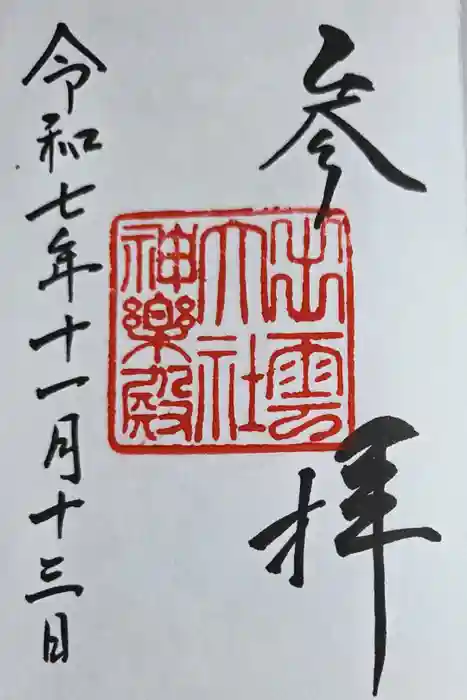 参拝
出雲
大社
神楽殿
令和七年十一月十三日